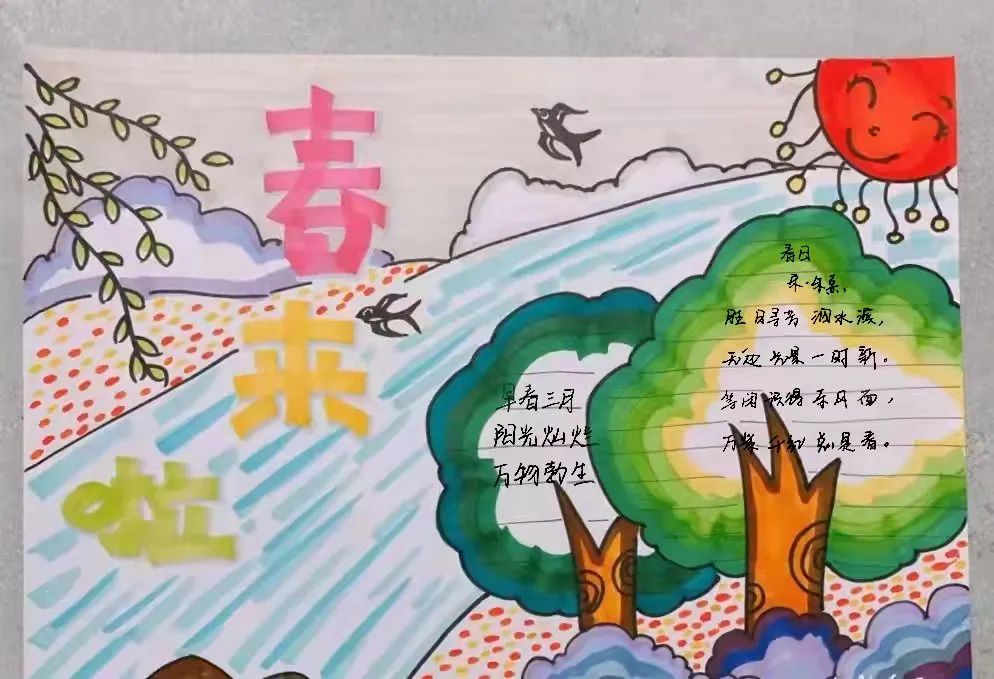 春
来
啦
早春三月
阳光灿烂
万物勃生
春日
宋·朱熹,
胜日寻芳 泗水滨,
无边光景一时新。
等闲识得东风面,
万紫千红总是春。